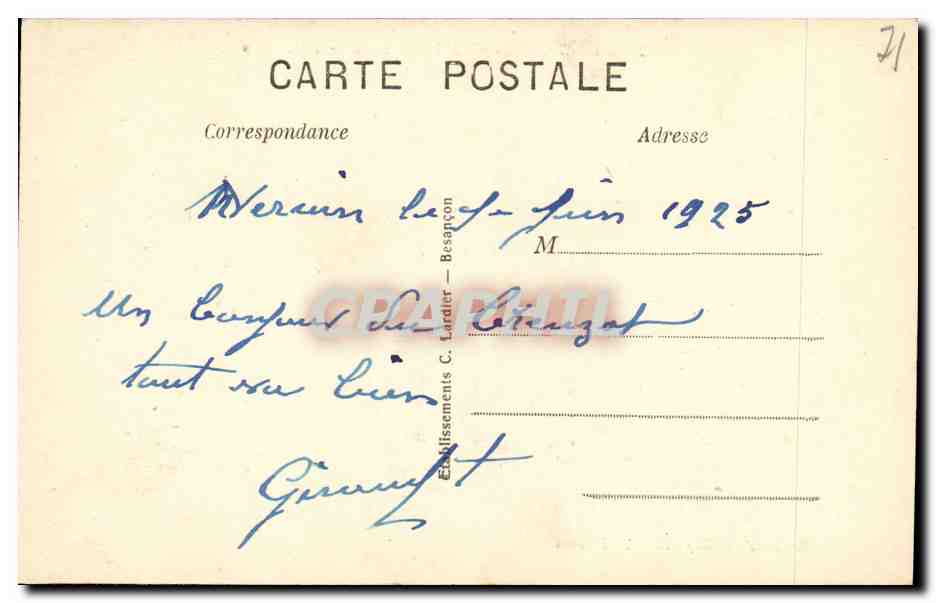 71
CARTE POSTALE
Correspondance
Adresse
le juin 1925
M
Un bonjour du Creuzot
tout va bien
Girault
Etablissements C. Lardier — Besançon
CPAPHIL